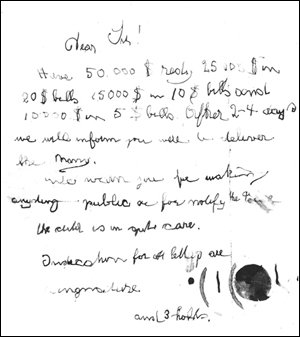 Dear Sir!
Have 50.000 $ redy 25000 $ in
20 $ bills 15000 $ in 10 $ bills and
10000 $ in 5 $ bills. After 2-4 days
we will inform you were to deliver
the mony.
We warn you for making
anyding public or for notify the
the child is in gut care.
Indication for all letters are
singnature
and 3 holds.